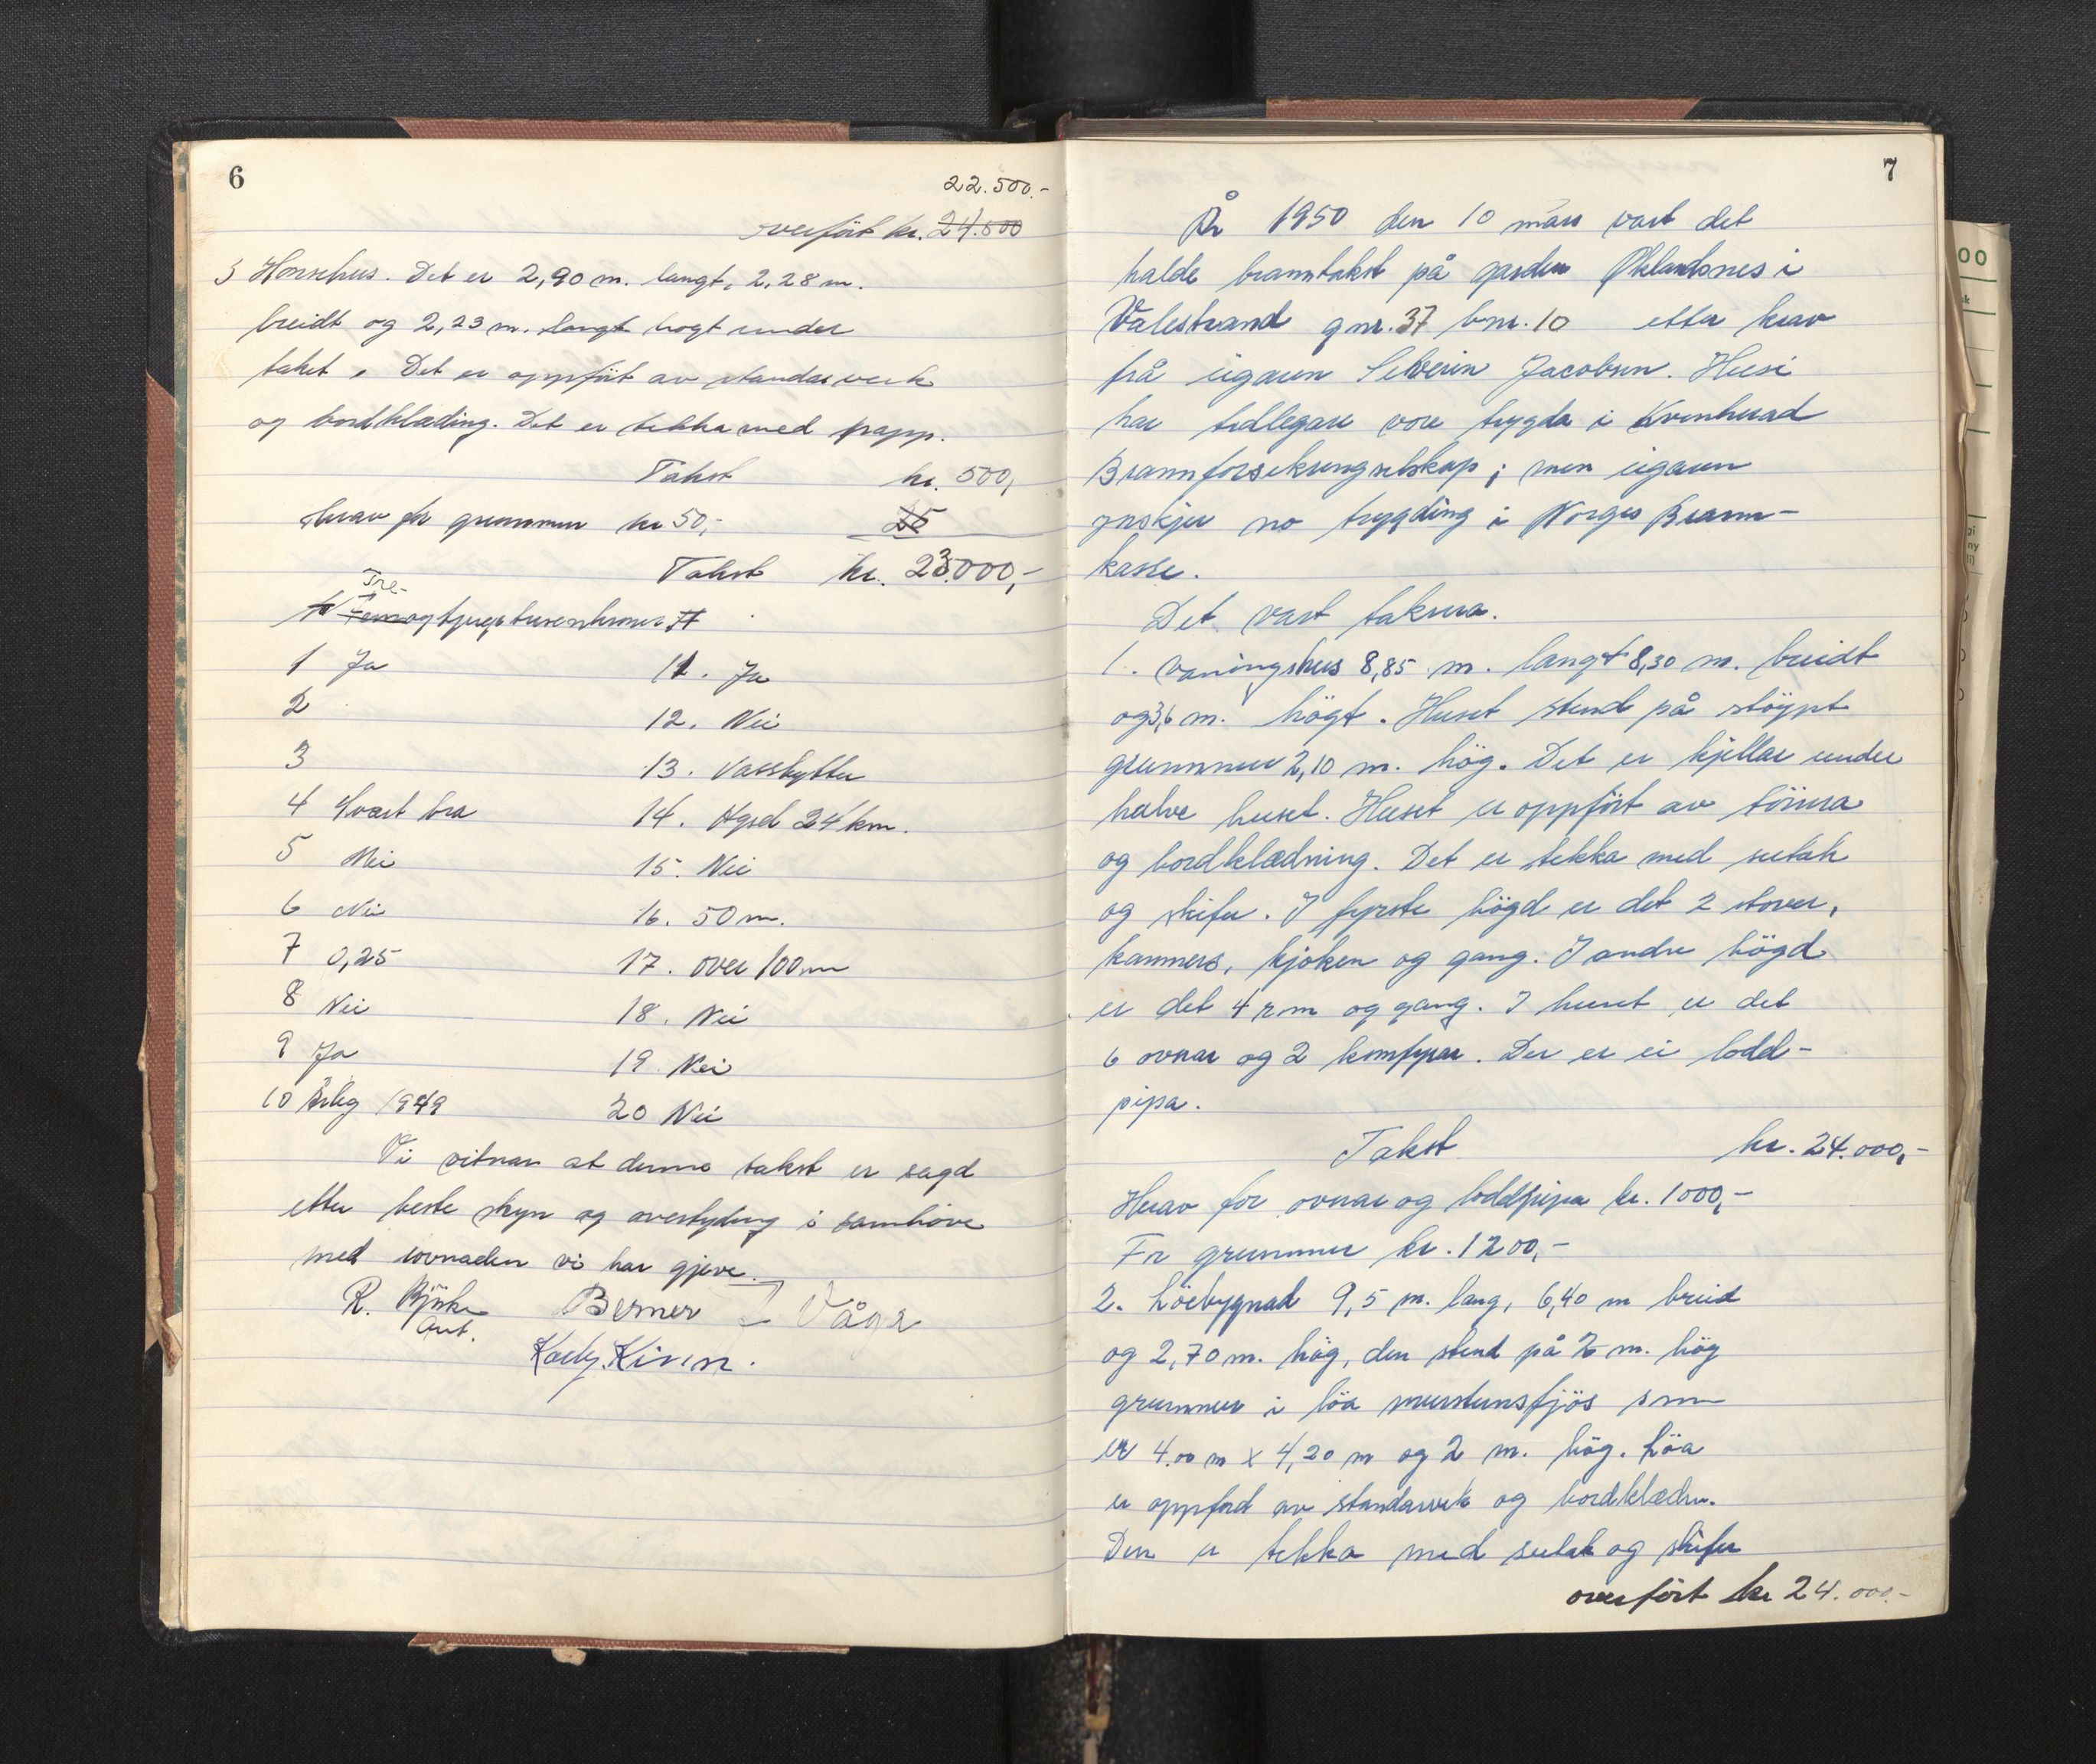 6
22.500.-
overfört kr. 24.500
3 Hønsehus. Det er 2,90 m. langt, 2,28 m.
breidt og 2,23 m. langt høgt under
taket. Det er oppfört av standarverk
og bordklæding. Det er tekka med papp.
Takst kr. 500,
Herav for grunnmur kr 50,- 25
Takst kr. 23.000,-
Tre-
Femogtjugetusenkroner
1 Ja
2
3
4 Svært bra
5 Nei
6 Nei
7 0,25
8 Nei
9 Ja
10 Årleg 1949
11. Ja
12. Nei
13. Vassbytter
14. 24 km.
15. Nei
16. 50 m.
17. over 100 m
18. Nei
19. Nei
20 Nei
Vi vitnar at denne takst er sagd
etter beste skyn og overtyding i samhøve
med lovnaden vi har gjeve.
R. Björke Berner Våge
Ant.
7
År 1950 den 10 mars vart det
halde branntakst på garden Øklandsnes i
Valestrand gnr. 37 bnr. 10 etter krav
frå eigaren Severin Jacobsen. Husi
har tidlegare vore trygda i Kvinherad
Brannforsekringselskap; men eigaren
ynskjer no trygding i Norges Brann-
kasse.
Det vart taksera.
1. Vaningshus 8,85 m. langt 8,30 m. breidt
og 3,6 m. högt. Huset stend på stöypt
grunnmur 2,10 m. hög. Det er kjellar under
halve huset. Huset er oppfört av tömra
og bordklædning. Det er tekka med sutak
og skifer. I fyrste högd er det 2 stover,
kammers, kjøken og gang. I andre högd
er det 4 rom og gang. I huset er det
6 ovnar og 2 komfyrar. Der er ei lodd-
pipa.
Takst kr. 24.000,-
Herav for ovnar og loddpipa kr. 1000,-
For grunnmur kr. 1200,-
2. Löebygnad 9,5 m. lang, 6,40 m breid
og 2,70 m. hög, den stend på 2 m. hög
grunnmur i löa murstensfjös som
er 4.00 m x 4,20 m og 2 m. hög. Löa
er oppförd av standarverk og bordklædn.
Den er tekka med sutak og skifer
overfört kr 24.000.-